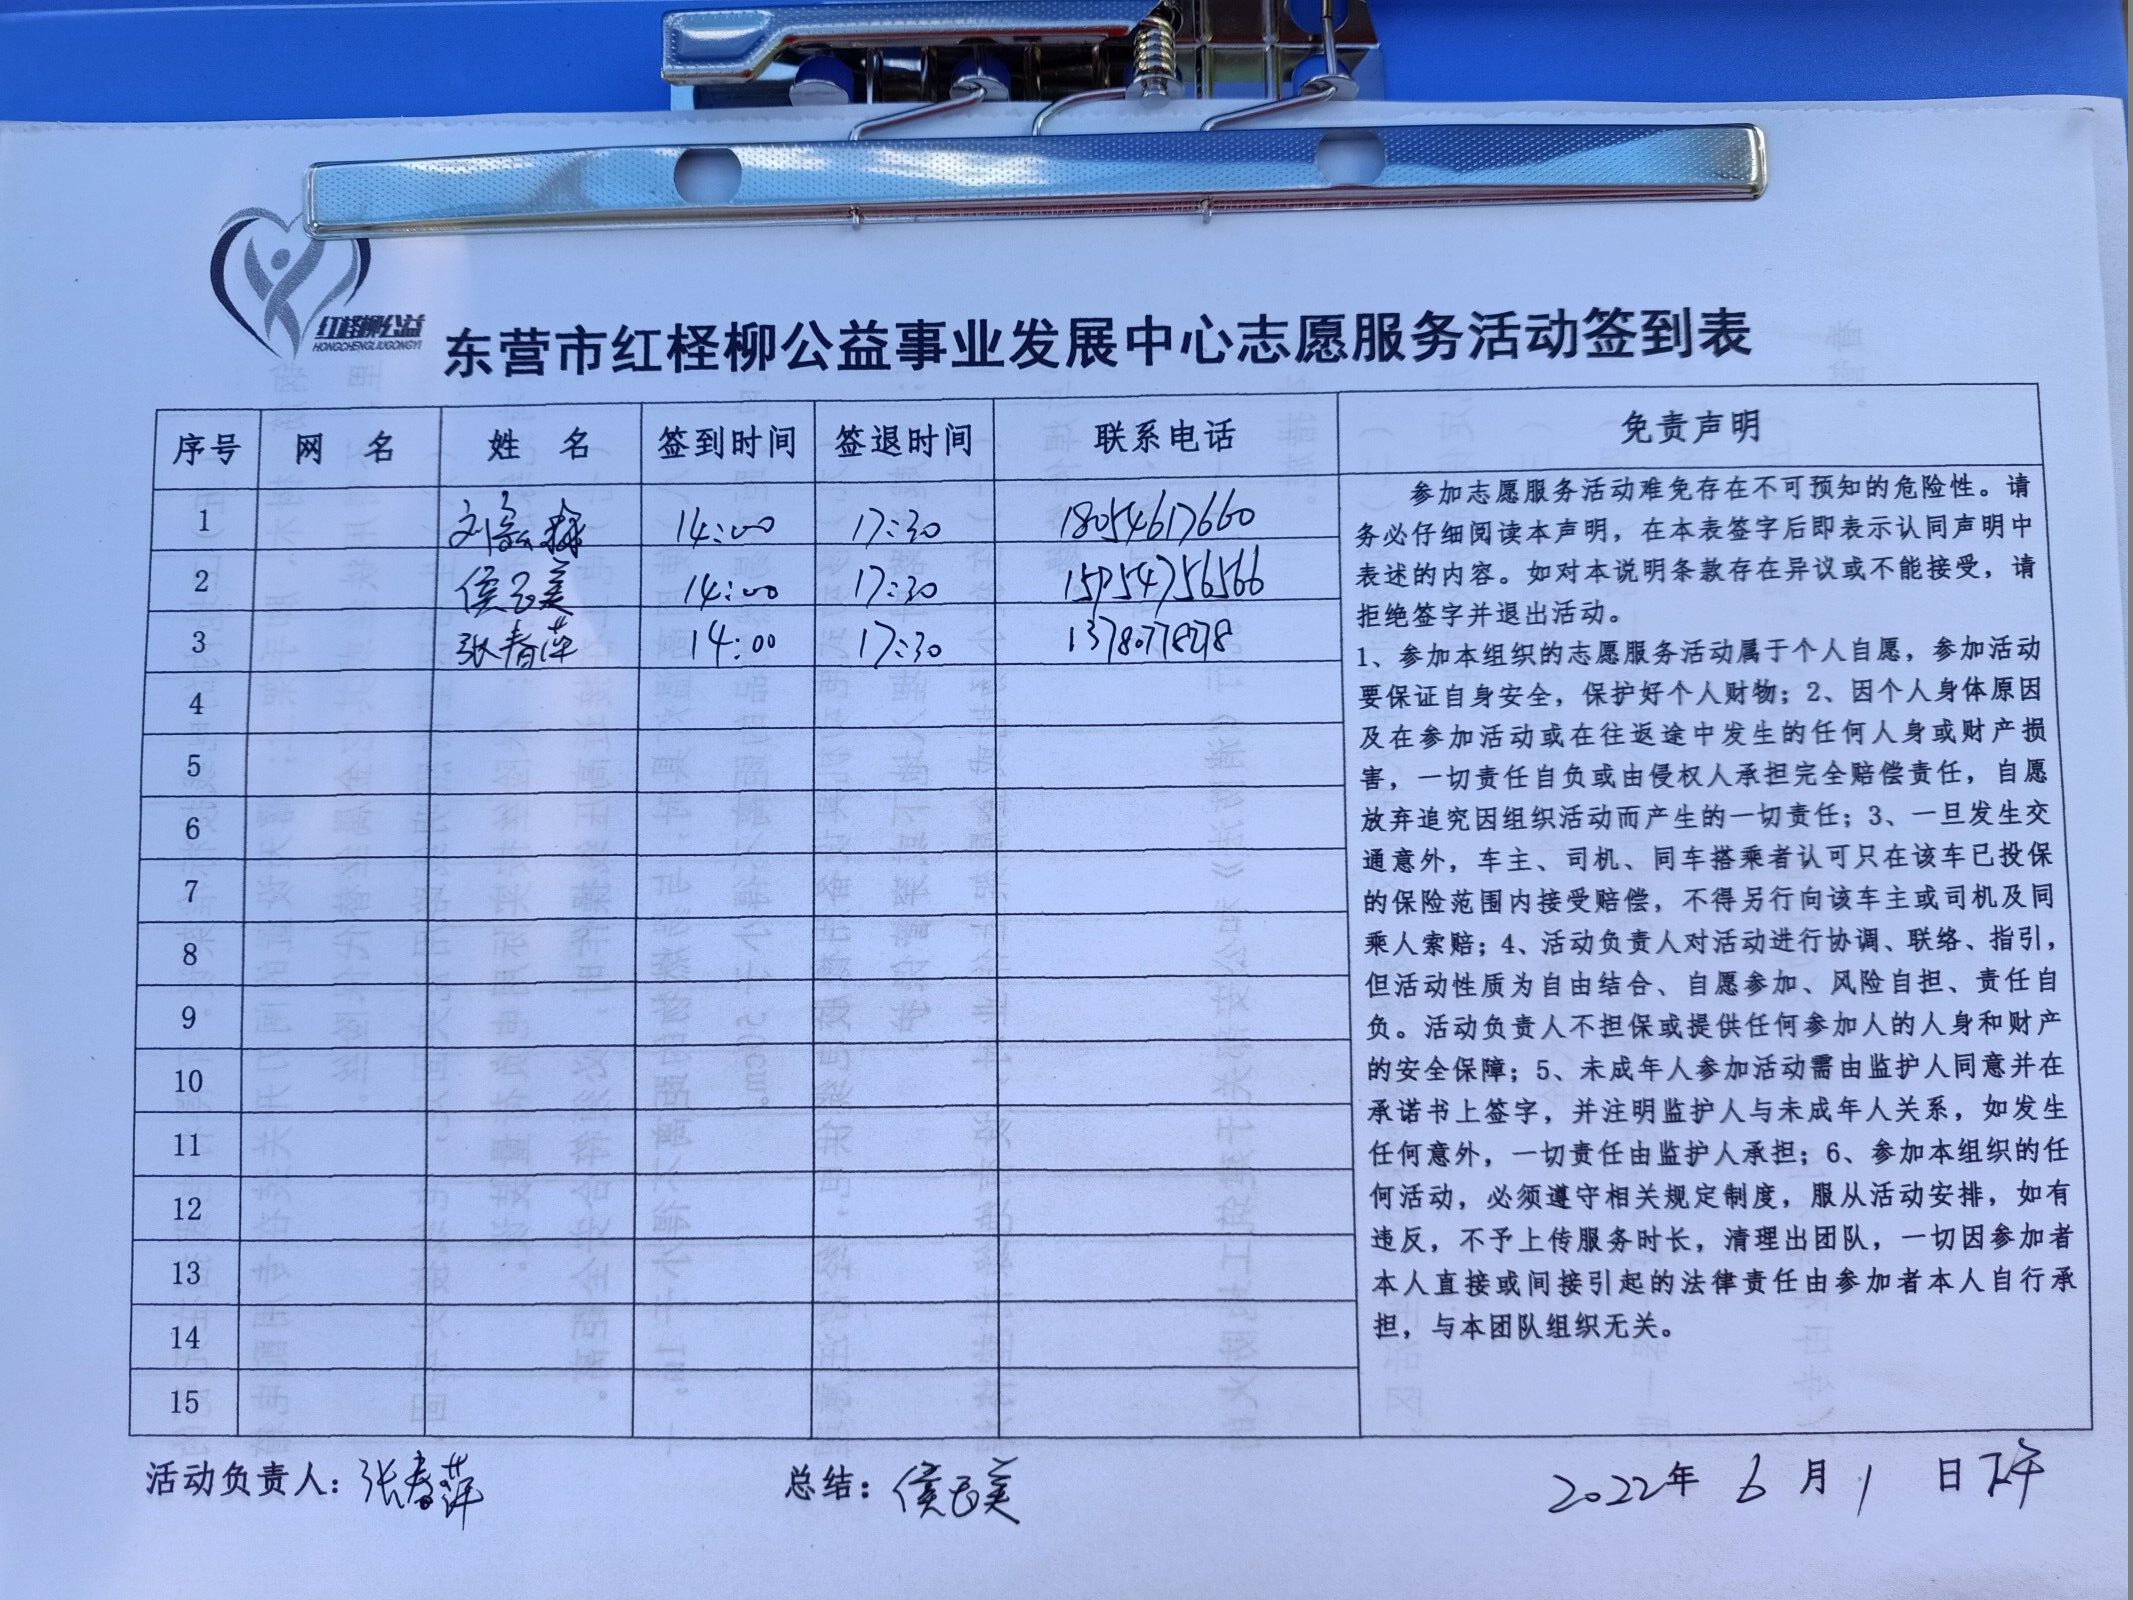 红柽柳公益
HONGCHENGLIUGONGYI
东营市红柽柳公益事业发展中心志愿服务活动签到表
序号 网 名 姓 名 签到时间 签退时间 联系电话 免责声明
1 14:00 17:30 18054617660
2 14:00 17:30 15754756566
3 张春萍 14:00 17:30
4
5
6
7
8
9
10
11
12
13
14
15
参加志愿服务活动难免存在不可预知的危险性。请
务必仔细阅读本声明，在本表签字后即表示认同声明中
表述的内容。如对本说明条款存在异议或不能接受，请
拒绝签字并退出活动。
1、参加本组织的志愿服务活动属于个人自愿，参加活动
要保证自身安全，保护好个人财物；2、因个人身体原因
及在参加活动或在往返途中发生的任何人身或财产损
害，一切责任自负或由侵权人承担完全赔偿责任，自愿
放弃追究因组织活动而产生的一切责任；3、一旦发生交
通意外，车主、司机、同车搭乘者认可只在该车已投保
的保险范围内接受赔偿，不得另行向该车主或司机及同
乘人索赔；4、活动负责人对活动进行协调、联络、指引，
但活动性质为自由结合、自愿参加、风险自担、责任自
负。活动负责人不担保或提供任何参加人的人身和财产
的安全保障；5、未成年人参加活动需由监护人同意并在
承诺书上签字，并注明监护人与未成年人关系，如发生
任何意外，一切责任由监护人承担；6、参加本组织的任
何活动，必须遵守相关规定制度，服从活动安排，如有
违反，不予上传服务时长，清理出团队，一切因参加者
本人直接或间接引起的法律责任由参加者本人自行承
担，与本团队组织无关。
活动负责人：张春萍 总结： 2022年 6 月 1 日 下午